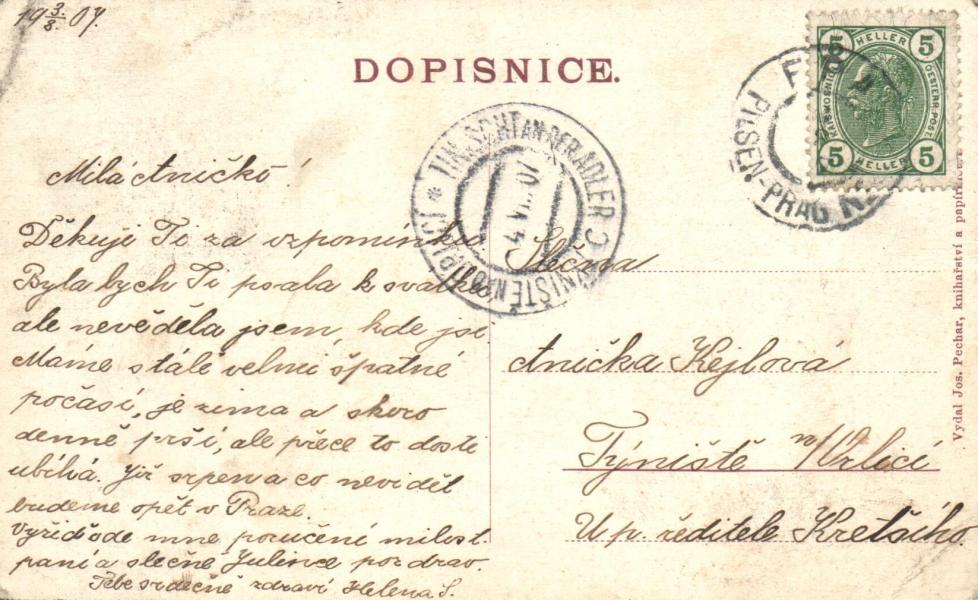 19 3/8. 07.
DOPISNICE.
5 HELLER 5
KAIS. KÖNIGL. OESTERR. POST.
5 HELLER 5
PILSEN-PRAG
TINISCHT AN DER ADLER
TÝNIŠTĚ NAD ORLICÍ
4. VIII. 07
Milá Aničko!
Děkuji Ti za vzpomínku.
Byla bych Ti psala k svátku
ale nevěděla jsem, kde jsi
Máme stále velmi špatné
počasí, je zima a skoro
denně prší, ale přece to dosti
ubíhá. Již srpen a co nevidět
budeme opět v Praze.
Vyřiď ode mne poručení milost.
paní a slečně Julince pozdrav.
Tebe srdečně zdraví Helena S.
Slečna
Anička Kejlová
Týniště n/Orlicí
U p. ředitele Kretšího.
Vydal Jos. Pechar, knihařství a papír